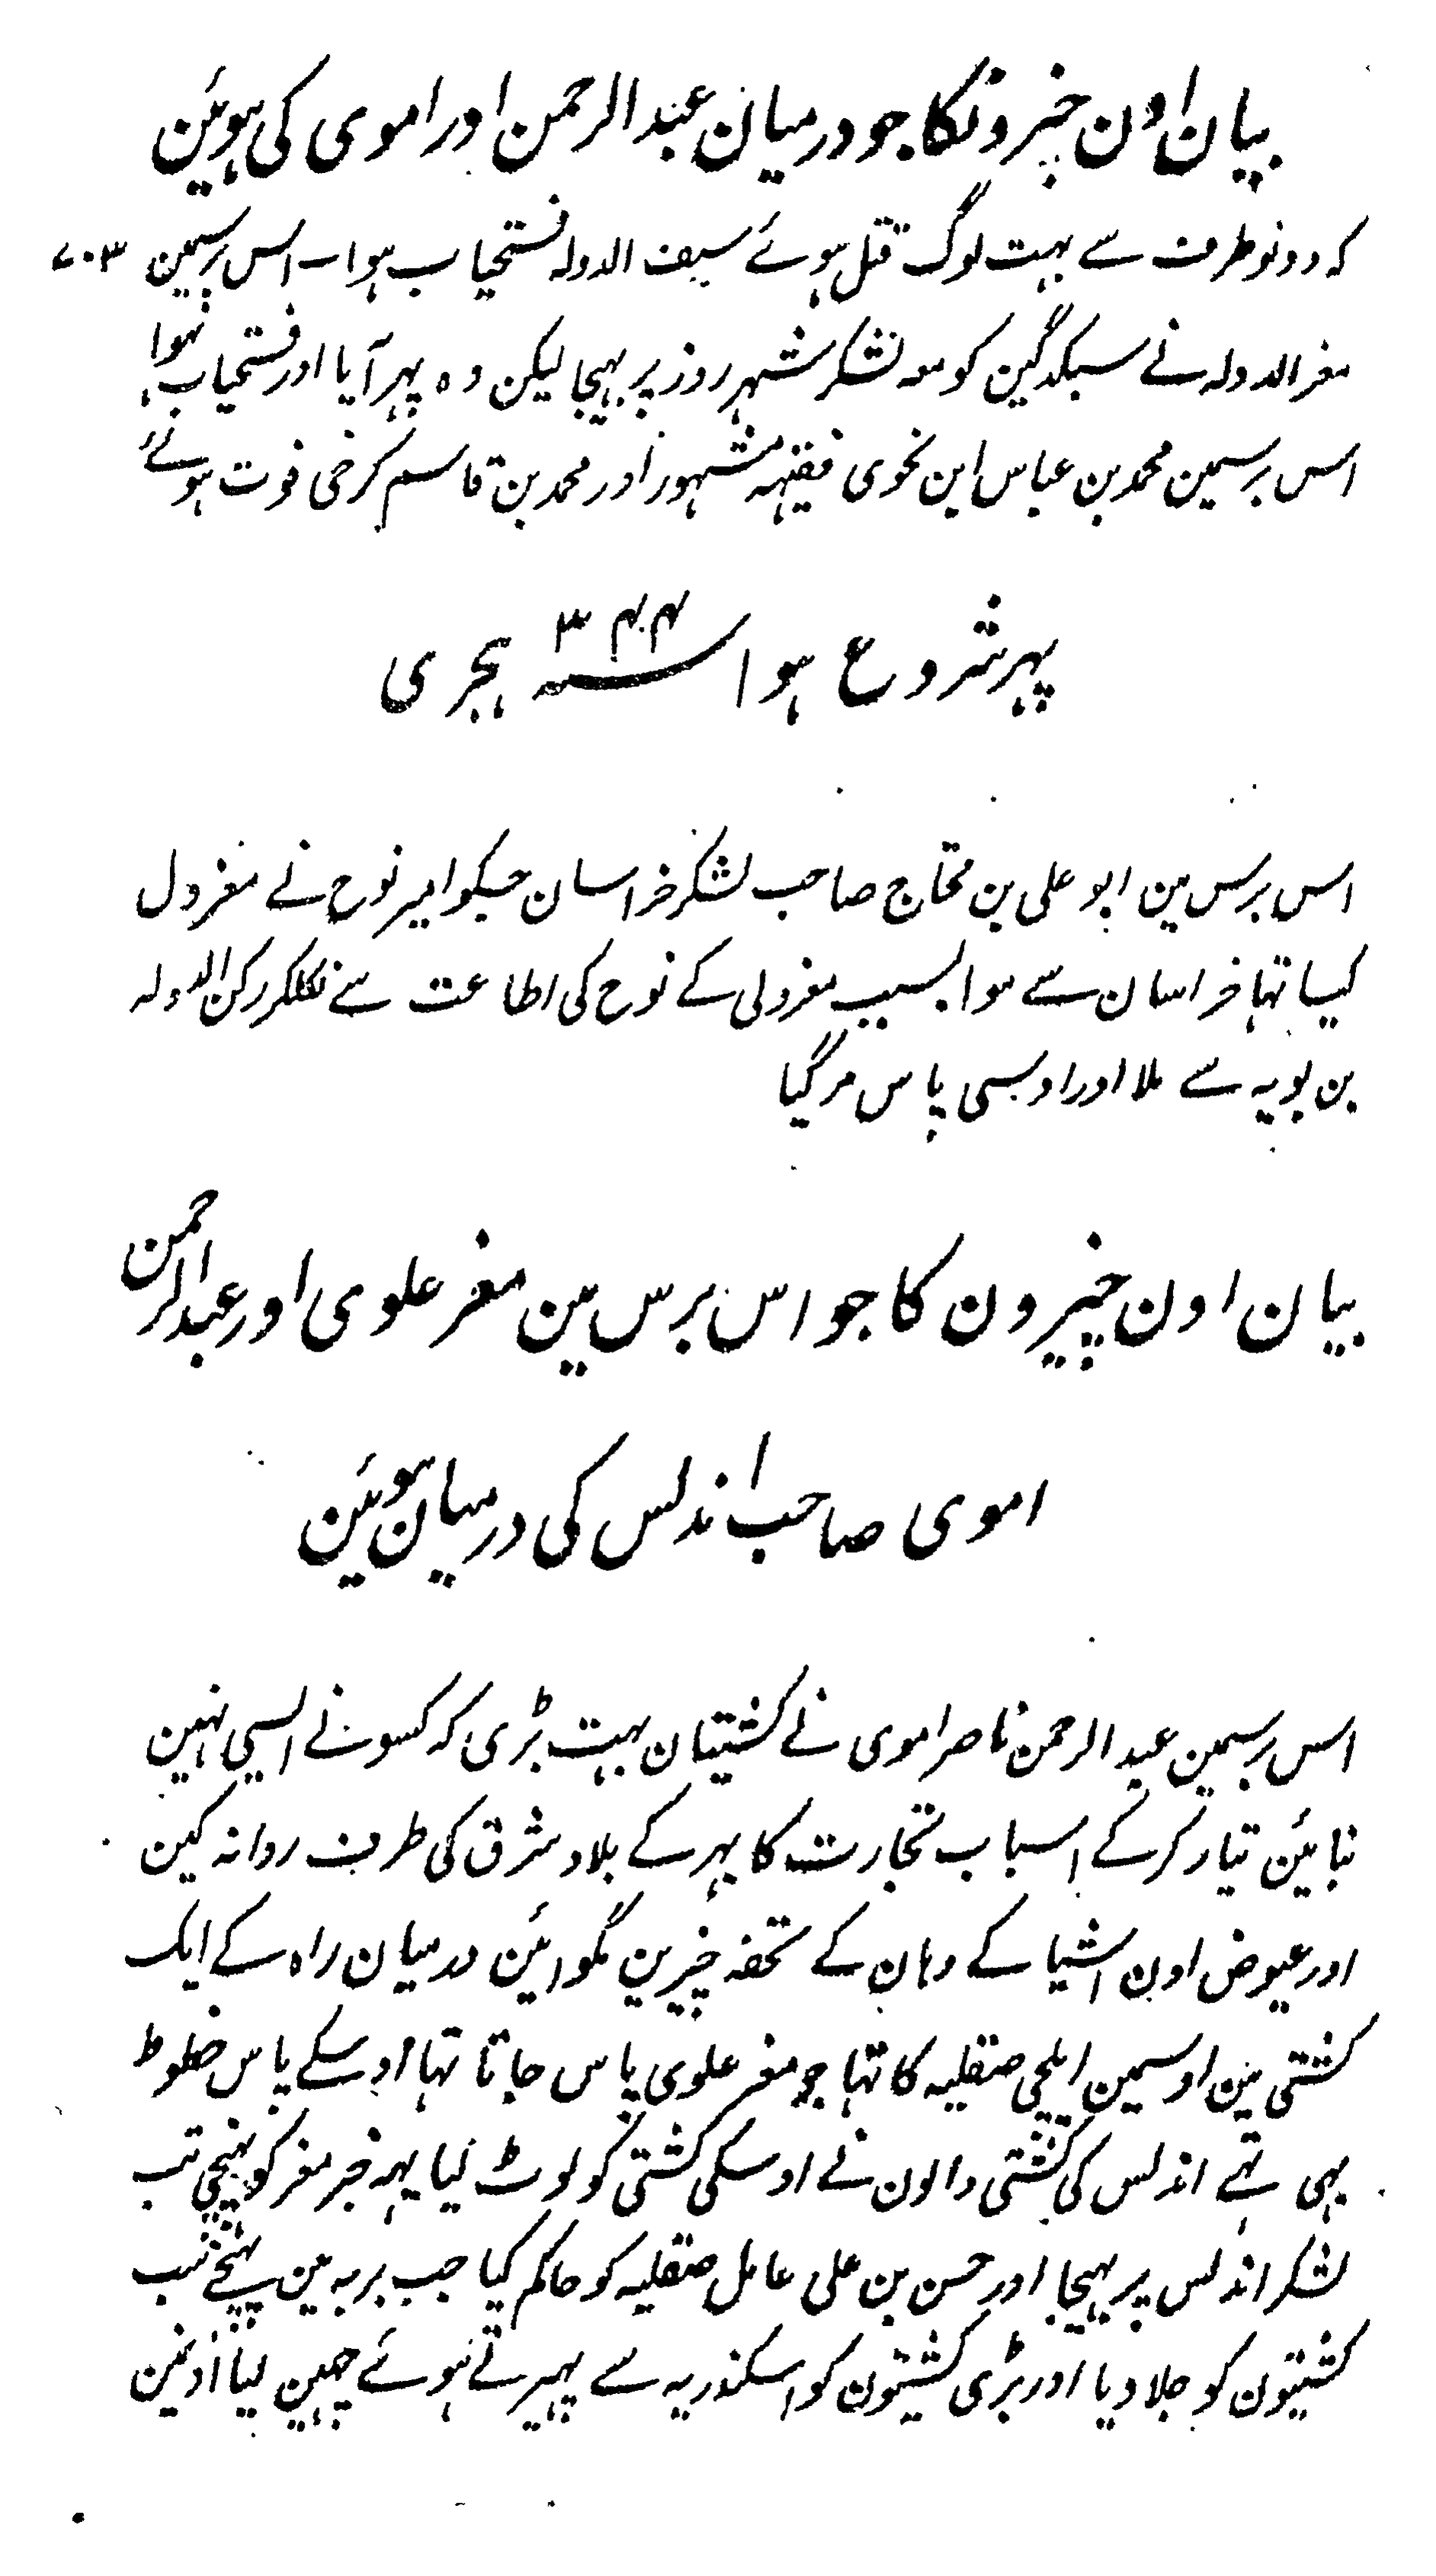 بیان اون خبرونکا جو درمیان عبد الرحمن اور اموی کی ہوئین
کہ دونو طرف سے بہت لوگ قتل ہوئے سیف الدولہ فتحیاب ہوا۔ اس برسمین ۷۰۳
معز الدولہ نے سبکتگین کو معہ لشکر شہر روز پر بہیجا لیکن وہ پہر آیا اور فتحیاب نہوا
اس برسمین محمد بن عباس ابن نحوی فقیہہ مشہور اور محمد بن قاسم کرخی فوت ہوئے
پہر شروع ہوا سنہ ۳۴۴ ہجری
اس برس مین ابو علی بن محتاج صاحب لشکر خراسان جسکو امیر نوح نے معزول
کیا تہا خراسان سے سو بسبب معزولی کے نوح کی اطاعت سے نکلکر رکن الدولہ
بن بویہ سے ملا اور اوسی پاس مرگیا
بیان اون چیزون کا جو اس برس مین معز علوی اور عبد الرحمن
اموی صاحب اندلس کی درمیان ہوئین
اس برسمین عبد الرحمن ناصر اموی نے کشتیان بہت بڑی کہ کسو نے ایسی نہین
بنائین تیار کرکے اسباب تجارت کا بہر کے بلاد شرق کی طرف روانہ کین
اور عیوض اون اشیا کے وہان کے تحفہ چیزین مگوائین درمیان راہ کے ایک
کشتی مین اوسمین ایلچی صقلیہ کا تہا جو معز علوی پاس جاتا تہا اوسکے پاس خطوط
بہی تہے اندلس کی کشتی والون نے اوسکی کشتی کو لوٹ لیا یہہ خبر معز کو پہنچی تب
لشکر اندلس پر بہیجا اور حسن بن علی عامل صقلیہ کو حاکم کیا جب بربہ مین پہنچے تب
کشتیون کو جلا دیا اور بڑی کشتیون کو اسکندریہ سے پہیرتے ہوئے چہین لیا اونمین